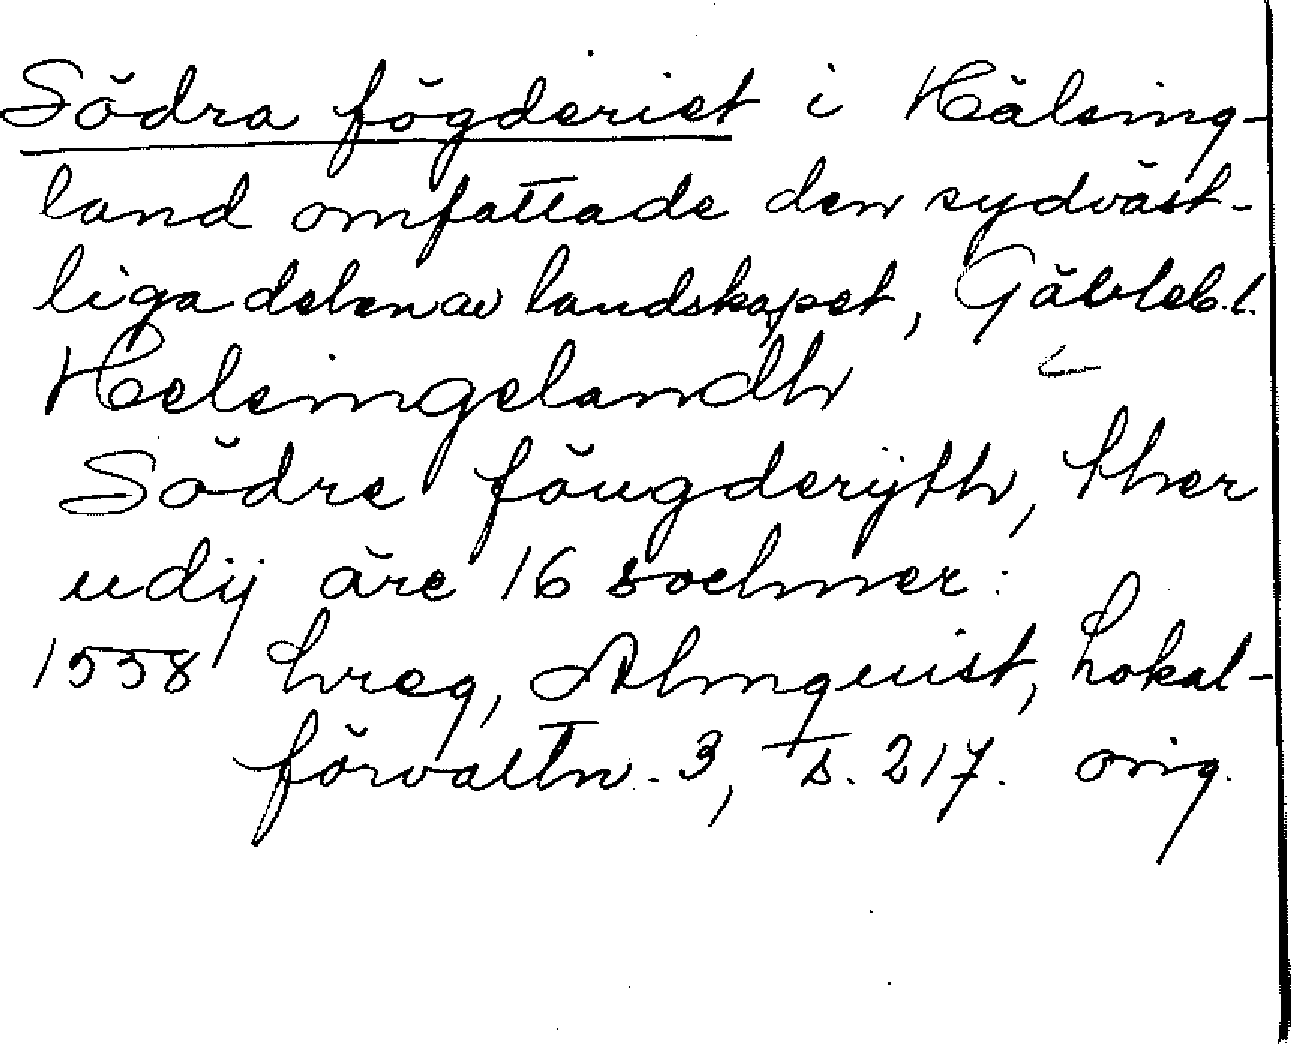 Södra fögderiet i Hälsing-
land omfattade den sydväst-
liga delen av landskapet, Gävleb.l.
Helsingelandh
Södre föugderijth, ther
udij äre 16 sochner:
1558 hreg, Almquist, Lokal-
förvaltn. 3, s. 217. orig.